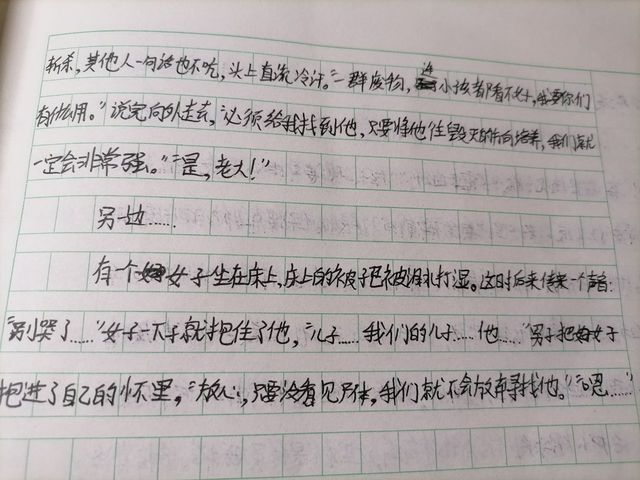 斩杀，其他人一句话也不吭，头上直流冷汗。“一群废物，连小孩都看不好，我要你们
有什么用。”说完向外走去，“必须给我找到他，只要将他往毁灭的方向培养，我们就
一定会非常强。”“是，老大！”
另一边……
有个女子坐在床上，床上的被子已被泪水打湿。这时后来传来一个声音：
“别哭了……”女子一下子就抱住了他，“儿子……我们的儿子……他……”男子把女子
抱进了自己的怀里，“放心，只要没看见尸体，我们就不会放弃寻找他。”“嗯……”